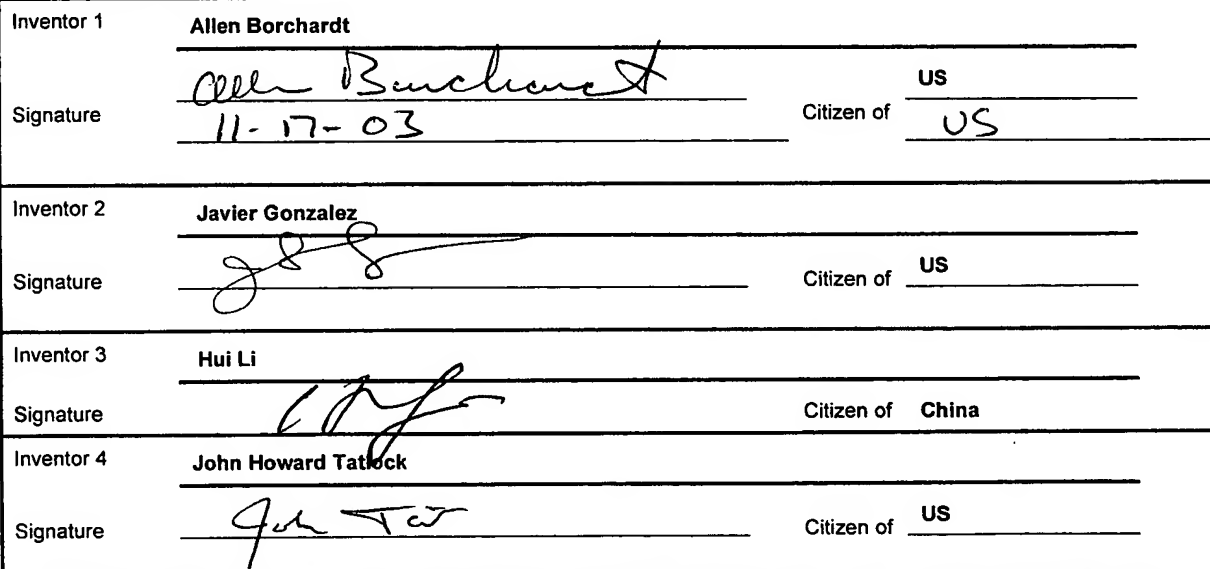 Inventor 1 Allen Borchardt
Allen Borchardt US
Signature 11-17-03 Citizen of US
Inventor 2 Javier Gonzalez
Signature Citizen of US
Inventor 3 Hui Li
Signature Citizen of China
Inventor 4 John Howard Tatlock
Signature John Tat Citizen of US